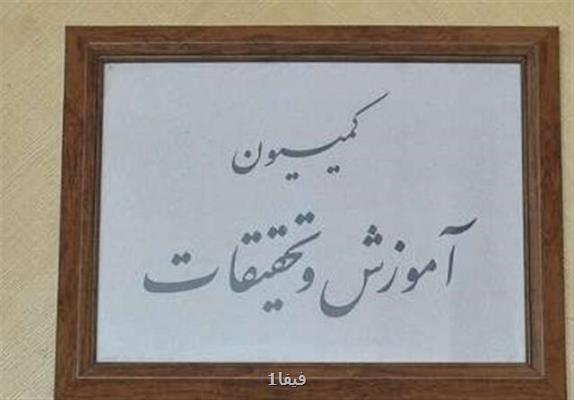 کمیسیون
آموزش و تحقیقات
فیفا1